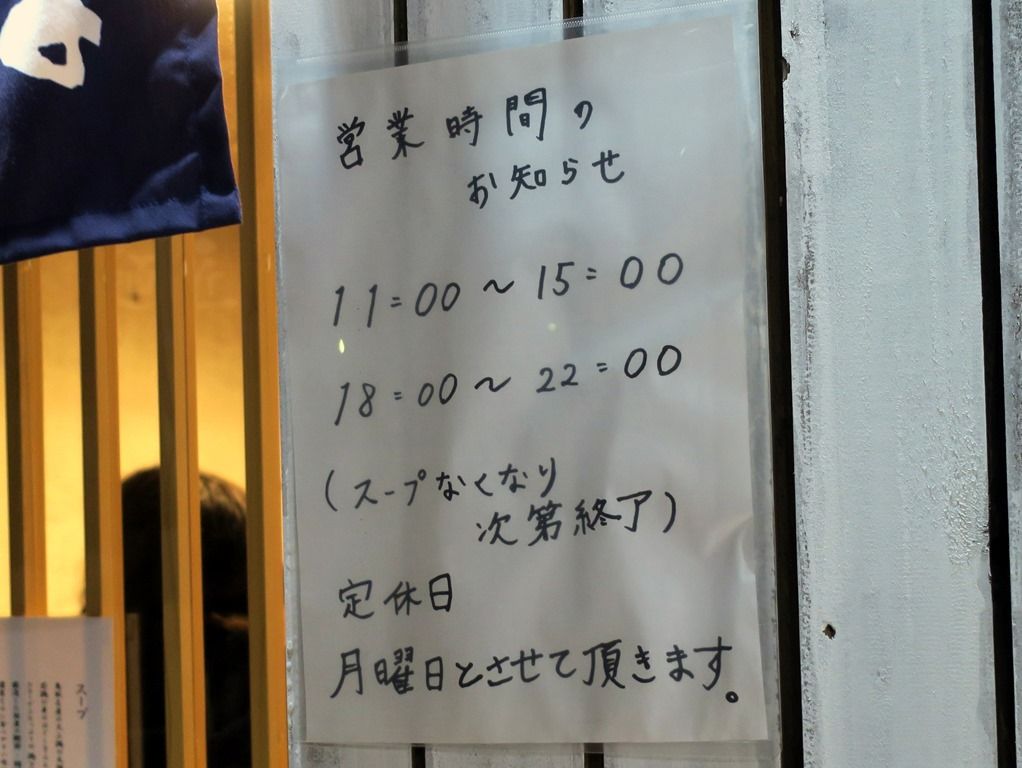 営業時間の
お知らせ
11:00～15:00
18:00～22:00
(スープなくなり
次第終了)
定休日
月曜日とさせて頂きます。
スープ